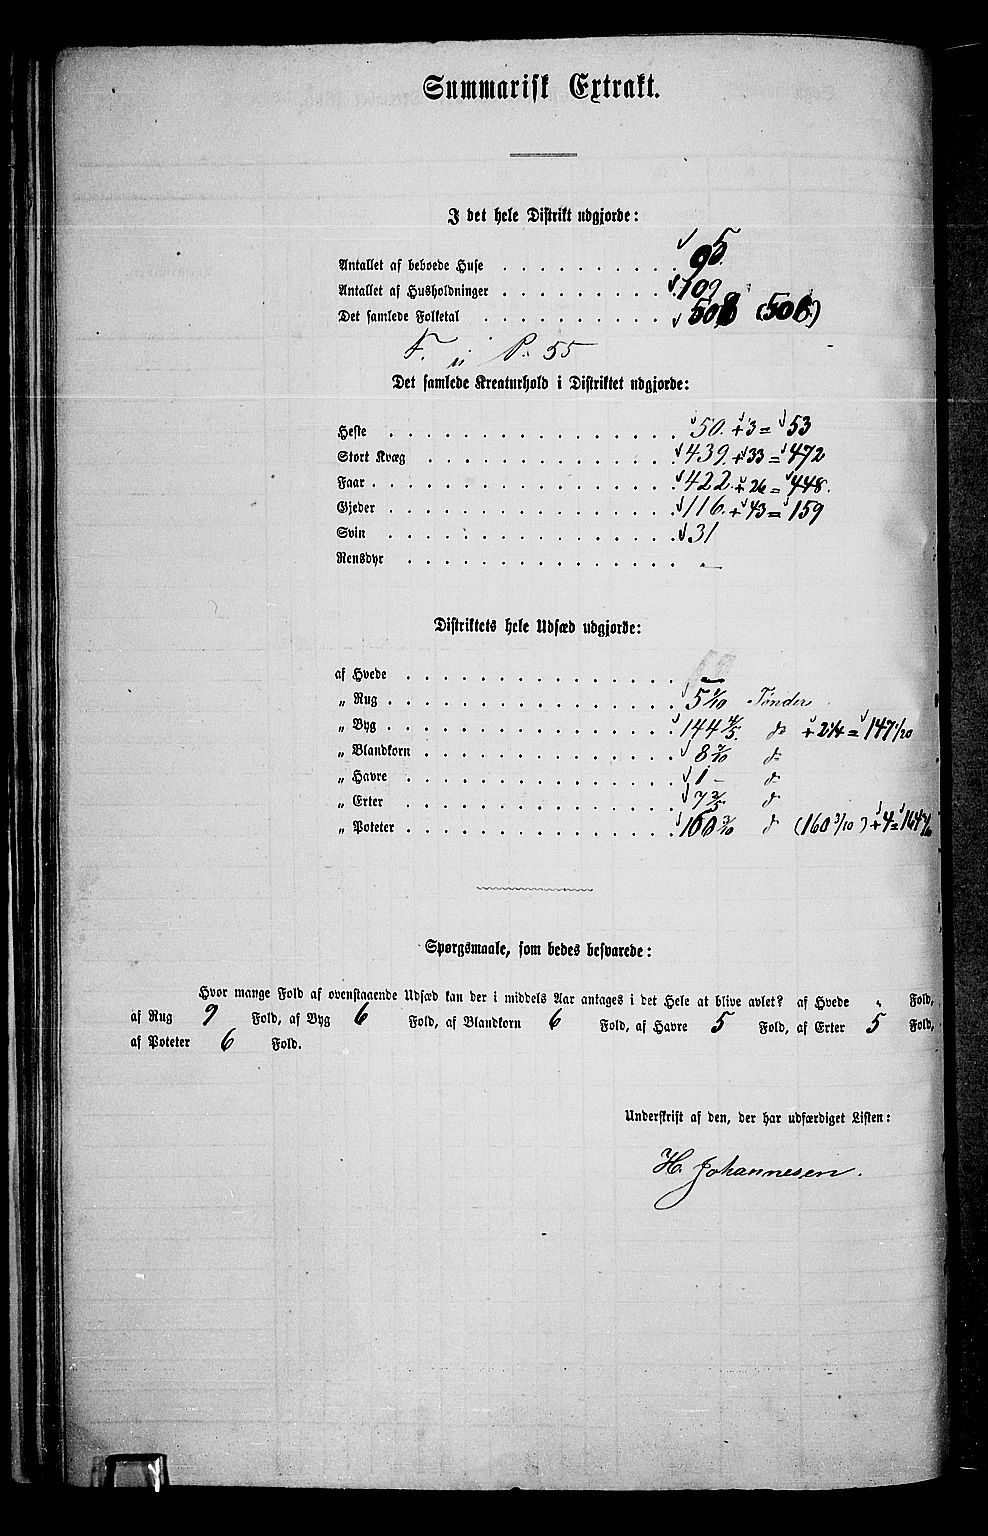 Summarisk Extrakt.
I det hele Distrikt udgjorde:
Antallet af beboede Huse . . . . . . . . . 95.
Antallet af Husholdninger . . . . . . . . 109
Det samlede Folketal . . . . . . . . 508 (508)
F. P. 55
Det samlede Kreaturhold i Distriktet udgjorde:
Heste . . . . . . . . . . . . . . . 50. + 3 = 53
Stort Kvæg . . . . . . . . . . . . . 439. + 33 = 472
Faar . . . . . . . . . . . . . . . . 422. + 26 = 448.
Gjeder . . . . . . . . . . . . . . . 116. + 43 = 159
Svin . . . . . . . . . . . . . . . 31
Rensdyr . . . . . . . . . . . . . . –
Distriktets hele Udsæd udgjorde:
af Hvede . . . . . . . . . . . . . . –
„ Rug . . . . . . . . . . . . . . . 5 Tønder
„ Byg . . . . . . . . . . . . . . . 144 4/5 do + 2 1/4 = 147 1/20
„ Blandkorn . . . . . . . . . . . . . 8 do
„ Havre . . . . . . . . . . . . . . 1 – do
„ Erter . . . . . . . . . . . . . . 7 2/5 do
„ Poteter . . . . . . . . . . . . . . 160 3/10 do (160 3/10) + 4 = 164 3/10
Spørgsmaale, som bedes besvarede:
Hvor mange Fold af ovenstaaende Udsæd kan der i middels Aar antages i det Hele at blive avlet? af Hvede „ Fold,
af Rug 9 Fold, af Byg 6 Fold, af Blandkorn 6 Fold, af Havre 5 Fold, af Erter 5 Fold,
af Poteter 6 Fold.
Underskrift af den, der har udfærdiget Listen:
H. Johannesen.